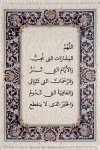 اللهم
البشارات التي تحب
والأيام التي تسر
والرحمات التي تتوالى
والعافية التي تدوم
والخير الذي لا ينقطع